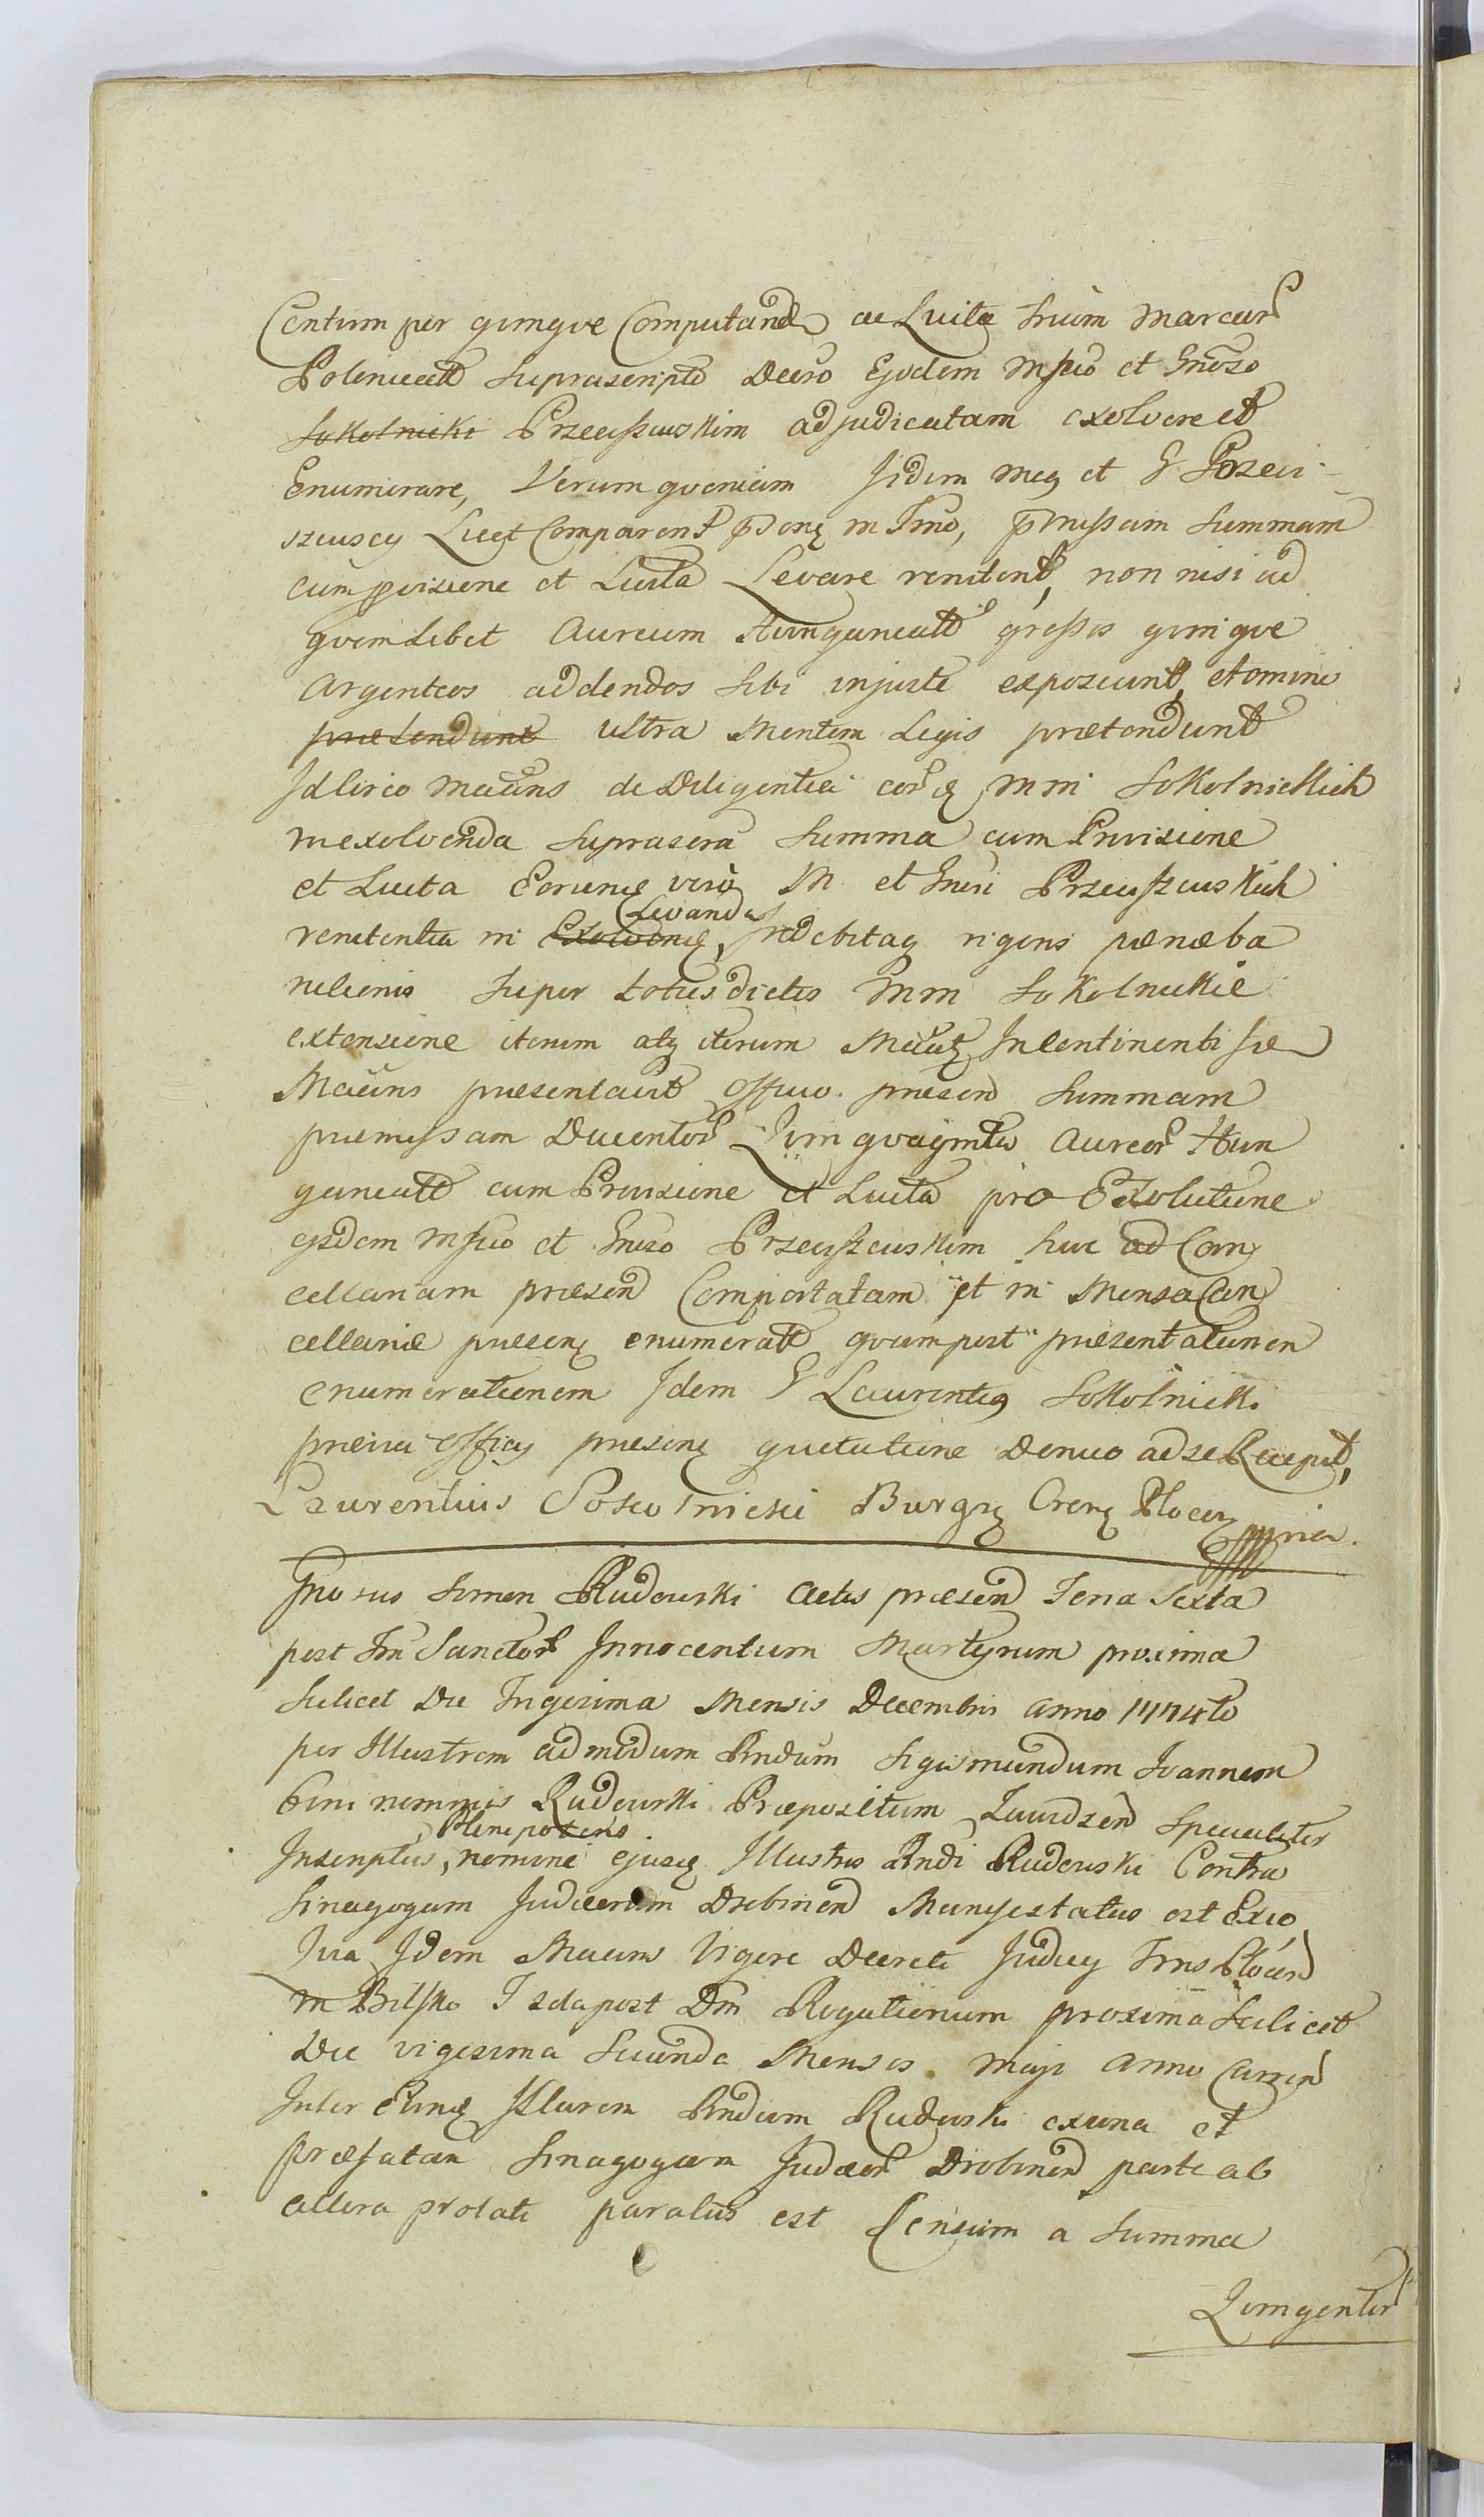 Centum per quinque Computand ac Luita trium Marcar
Polonicall suprascripto Decro Ejsdem Mfico et Gnoso
Sokolnicki Przeciszewskim adjudicatam exolvere et
Enumerare, Verum quoniam Jidem Mcg et G Przeci-
szewscy Licet Comparent in Tmo, pmissam Summam
cum pvisione et Luita Levare renitent, non nisi ad
quemlibet Aureum Hungaricall grossos quinque
Argenteos addendos sibi injuste exposcunt, et omine
prætendunt ultra Mentem Legis prætendunt
Idcirco Maains de Diligentia MM Sokolnickich
in exolvenda suprascra Summa cum Provisione
et Luita Eorunq vero M et Gnsi Przeciszewskich
Levanda
renitentia in Exolvenq, indebitaq rigens pænæ ba
nitionis super toties dictis MM Sokolnickie
extensione iterum atq iterum Incontinenti
Maains præsentavit Officio præsen Summam
præmissam Ducentor Quinquaginta Aureor Hun
garicall cum Provisione et Luita pro Exolutione
ejsdem Mfico et Gnoso Przeciszewskim huc ad Can
cellariam præsen Comportatam et in Mensa Can
cellariæ præsenq enumeratt quam post præsentationem
enumerationem Idem G Laurentig Sokolnicki
prævia Officij præsenq quietatione Denuo ad se Recepit,
Laurentius Sokolnicki Burgq Crenq Plocenq mpria.
Gnosus Simon Rudowski Actis præsen Feria Sexta
post Fm Sanctor Innocentum Martyrum proxima
scilicet Die Trigesima Mensis Decembris Anno 1774to
per Illustrem admodum Rndum Sigismundum Joannem
bini nominis Rudowski Præpositum specialiter
Plenipotens
Inscriptus, nomine ejusq Illustris Rndi Rudowski Contra
Sinagogam Judæorum Drobinen Manifestatus est Exio
Idem Maains Vigore Decreti Judicij Tmis Plocen
in Bielsko F 2da post Dm Rogationum proxima scilicet
Die vigesima Secunda Mensis Maji Anno Curren
Inter Eunq Illurem Rndum Rudowski ex una et
præfatam Sinagogam Judæor Drobinen parte ab
altera prolati paratus est Censum a Summa
Quingentor